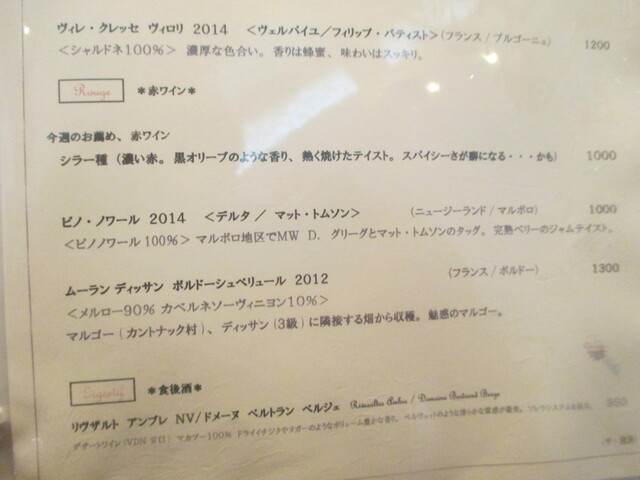 ヴィレ・クレッセ ヴィロリ 2014 <ヴェルパイユ/フィリップ・バティスト> (フランス/ブルゴーニュ) 1200
<シャルドネ100%> 濃厚な色合い。香りは蜂蜜、味わいはスッキリ。
Rouge *赤ワイン*
今週のお薦め、赤ワイン
シラー種 (濃い赤。黒オリーブのような香り、熱く焼けたテイスト。スパイシーさが癖になる・・・かも) 1000
ピノ・ノワール 2014 <デルタ / マット・トムソン> (ニュージーランド/マルボロ) 1000
<ピノノワール100%> マルボロ地区でMW D. グリーグとマット・トムソンのタッグ。完熟ベリーのジャムテイスト。
ムーラン ディッサン ボルドーシュペリュール 2012 (フランス/ボルドー) 1300
<メルロー90% カベルネソーヴィニヨン10%>
マルゴー(カントナック村)、ディッサン(3級)に隣接する畑から収穫。魅惑のマルゴー。
Digestif *食後酒*
リヴザルト アンブレ NV/ドメーヌ ベルトラン ベルジェ Rivesaltes Ambre / Domaine Bertrand Berge
デザートワイン(VDN 甘口) マカブー100% ドライイチジクやヌガーのようなボリューム豊かな香り。ベルヴェットのような滑らかな質感が最高。